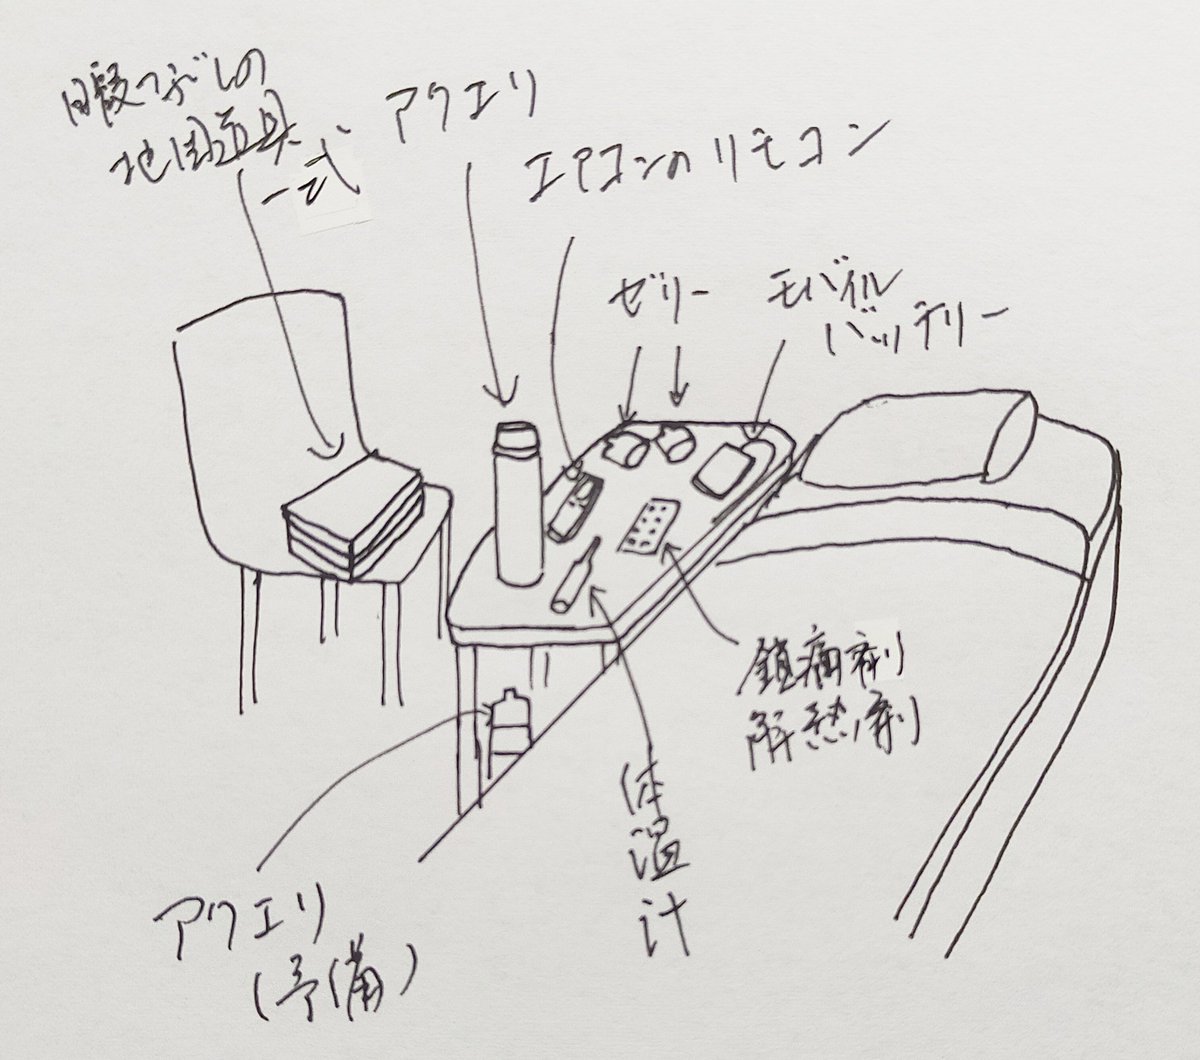 暇つぶしの
地図道具
一式
アクエリ
エアコンのリモコン
ゼリー
モバイル
バッテリー
鎮痛剤
解熱剤
体温計
アクエリ
(予備)